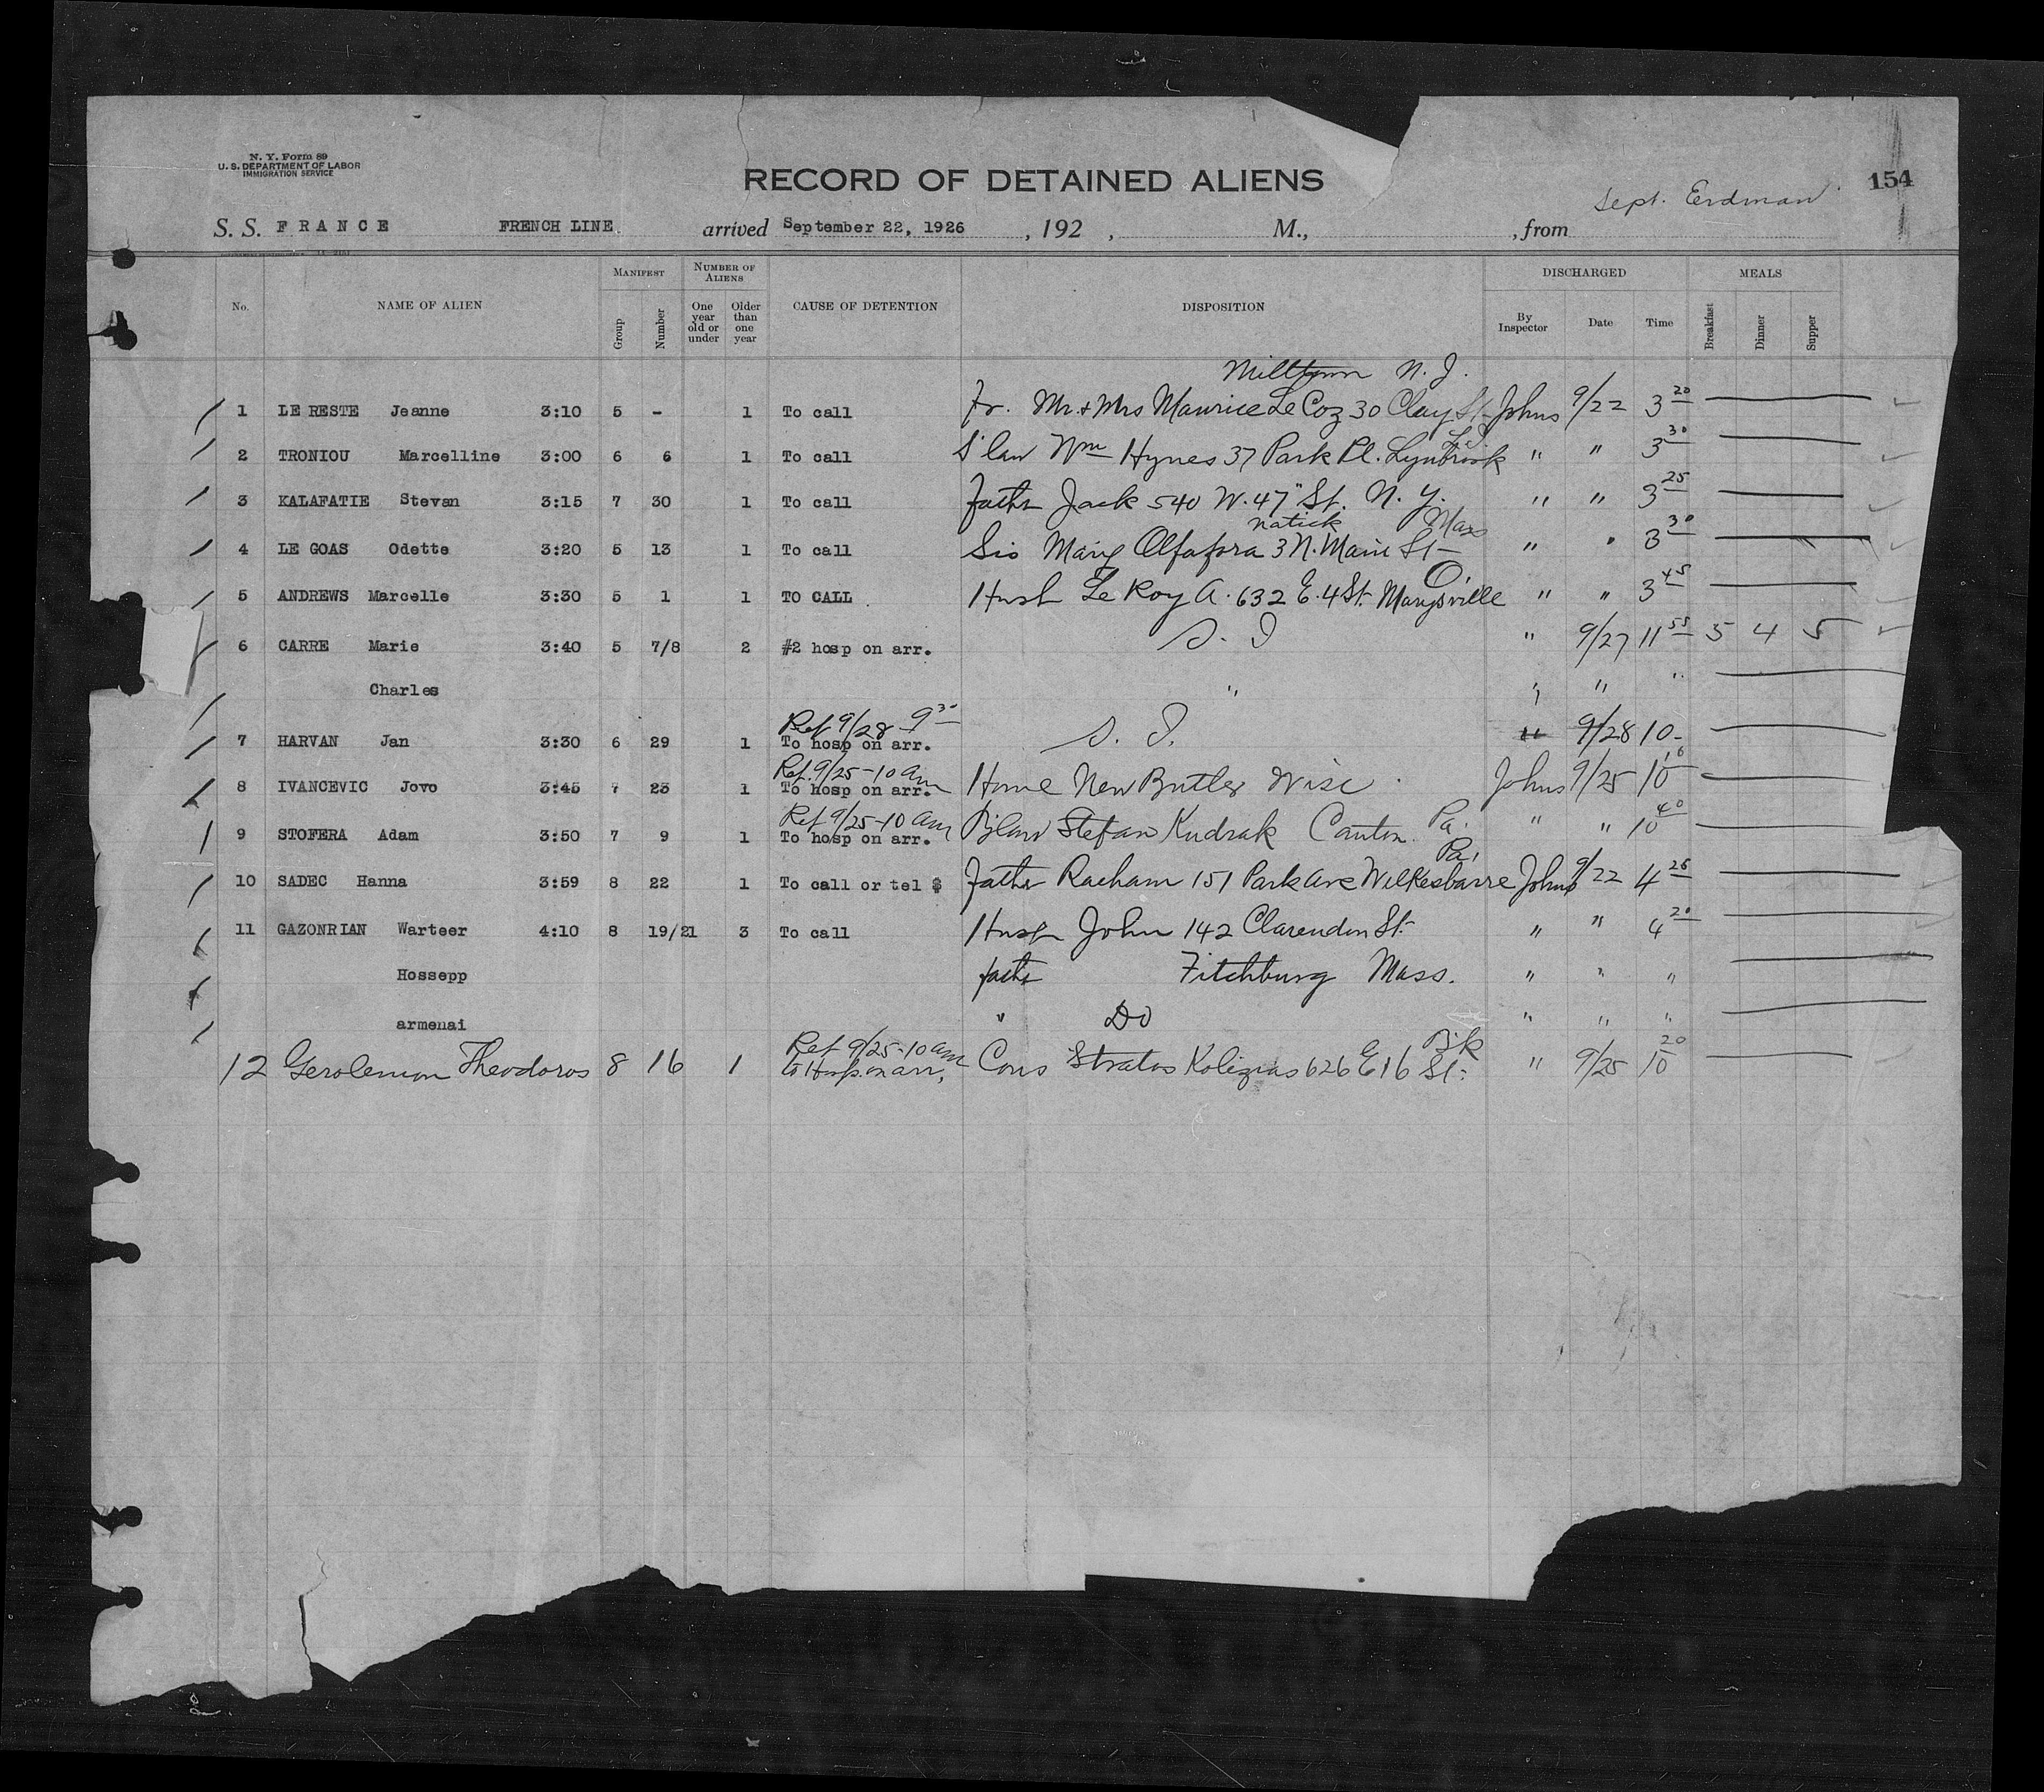 N. Y. Form 89
U. S. DEPARTMENT OF LABOR
IMMIGRATION SERVICE
RECORD OF DETAINED ALIENS
154
Sept. Erdman
S. S. FRANCE FRENCH LINE arrived September 22, 1926, 192 , M., , from
No. NAME OF ALIEN MANIFEST Group Number NUMBER OF ALIENS One year old or under Older than one year CAUSE OF DETENTION DISPOSITION DISCHARGED By Inspector Date Time MEALS Breakfast Dinner Supper
Milltown N. J.
1 LE RESTE Jeanne 3:10 5 - 1 To call Fr. Mr. & Mrs Maurice Le Coz 30 Clay St Johns 9/22 3 20
L.I.
2 TRONIOU Marcelline 3:00 6 6 1 To call S'law Wm Hynes 37 Park Pl. Lynbrook " " 3 30
3 KALAFATIE Stevan 3:15 7 30 1 To call Father Jack 540 W. 47" St. N. Y. " " 3 25
Natick Mass
4 LE GOAS Odette 3:20 5 13 1 To call Sis Mary 3 N. Main St " " 3 30
O.
5 ANDREWS Marcelle 3:30 5 1 1 TO CALL Husb Le Roy A. 632 E. 4 St. Marysville " " 3 45
6 CARRE Marie 3:40 5 7/8 2 #2 hosp on arr. S. I " 9/27 11 55 5 4 5
Charles " " " "
Ref 9/28 9 30
7 HARVAN Jan 3:30 6 29 1 To hosp on arr. S. I. " 9/28 10-
Ref. 9/25-10 am
8 IVANCEVIC Jovo 3:45 7 23 1 To hosp on arr. Home New Butler Wisc Johns 9/25 10 10
Ref 9/25-10 am
9 STOFERA Adam 3:50 7 9 1 To hosp on arr. B'law Stefan Kudrak Canton Pa. " " 10 40
Pa.
10 SADEC Hanna 3:59 8 22 1 To call or tel $ Father Racham 151 Park Ave Wilkesbarre Johns 9/22 4 25
11 GAZONRIAN Warteer 4:10 8 19/21 3 To call Husb John 142 Clarendon St. " " 4 20
Hossepp father Fitchburg Mass. " " "
armenai " Do " " "
Ref 9/25-10 am Bk
12 Gerolemon Theodoros 8 16 1 to Hosp. on arr. Cous Stratos Kolezias 626 E 16 St. " 9/25 10 20